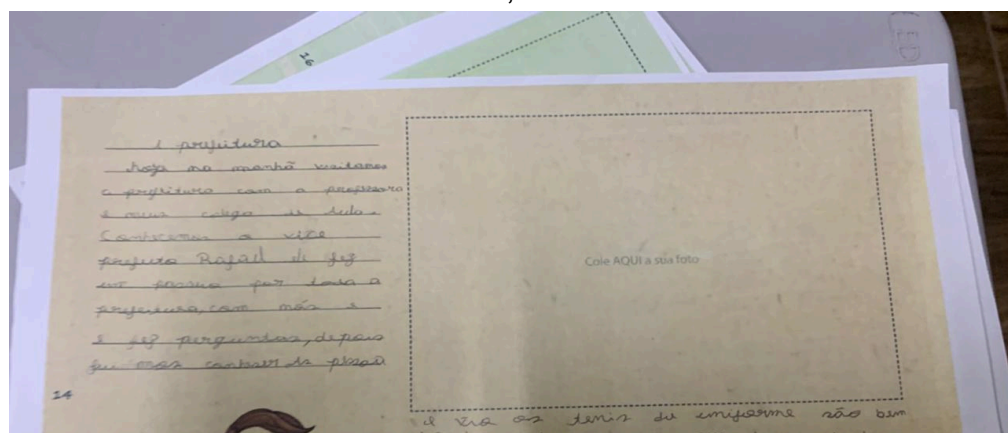 A prefeitura
hoja na manhã visitamos
a prefeitura com a professora
e meus colega de
Conhecemos o vice
prefeito Rafael
um passeio por toda a
prefeitura, com nós e
e fez perguntas, depois
mos conhecer
14
Cole AQUI a sua foto
os tenis de uniforme são bem
16